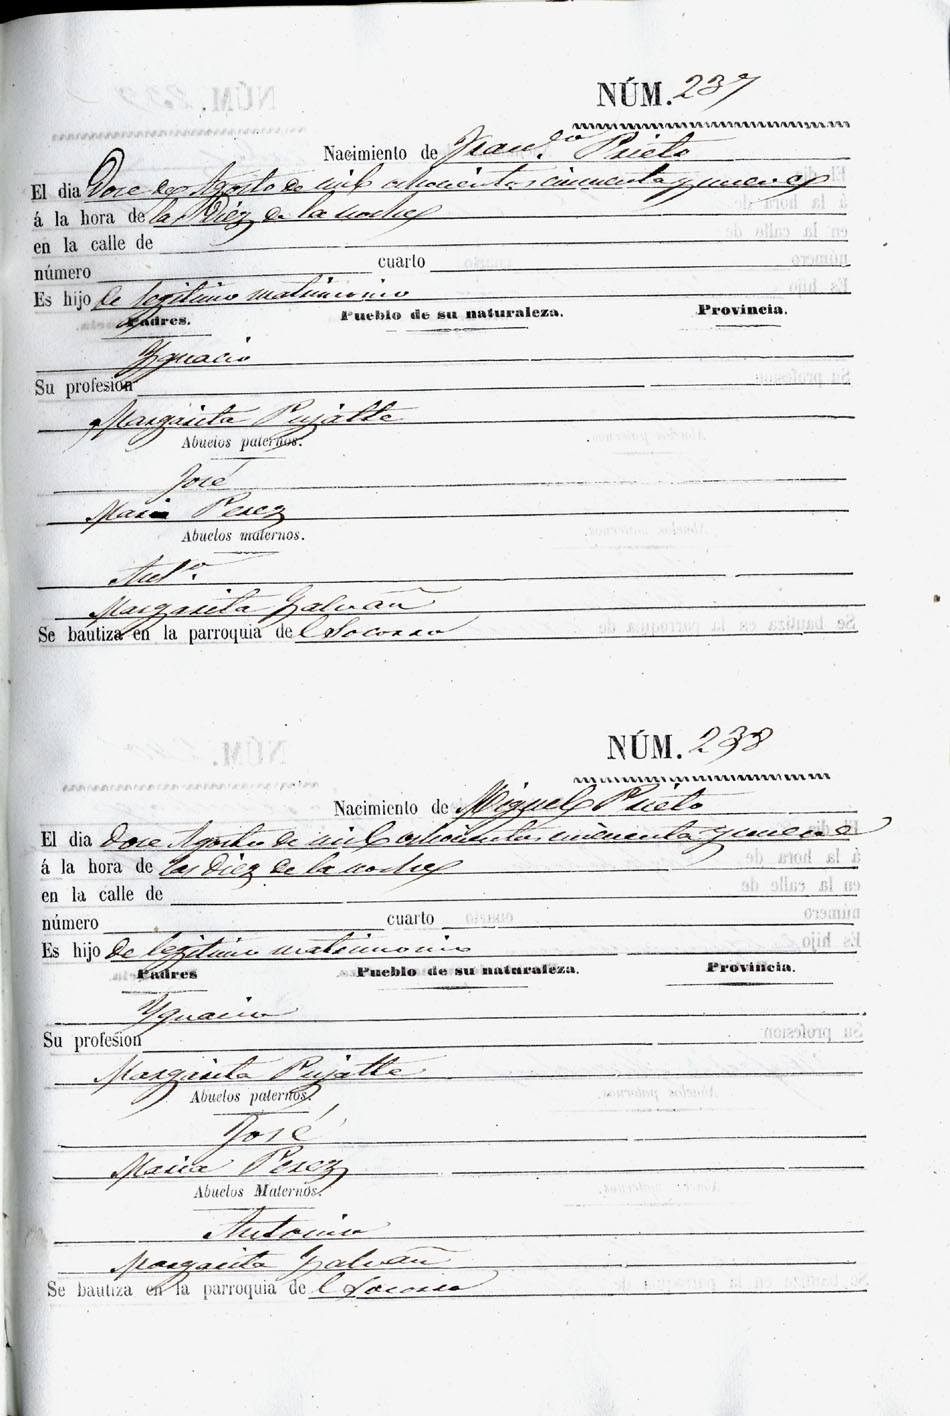 NÚM. 237
Nacimiento de Fran.co Prieto
El dia Doce de Agosto de mil ochocientos cincuenta y nueve
á la hora de las Diez de la noche
en la calle de
número cuarto
Es hijo de legitimo matrimonio
Padres. Pueblo de su naturaleza. Provincia.
Ygnacio
Su profesion
Margarita Pujalte
Abuelos paternos.
José
Maria Perez
Abuelos maternos.
Ant.o
Margarita Galvañ
Se bautiza en la parroquia de l Socorro
NÚM. 238
Nacimiento de Miguel Prieto
El dia doce Agosto de mil ochocientos cincuenta y nueve
á la hora de las diez de la noche
en la calle de
número cuarto
Es hijo de legitimo matrimonio
Padres Pueblo de su naturaleza. Provincia.
Ygnacio
Su profesion
Margarita Pujalte
Abuelos paternos.
José
Maria Perez
Abuelos Maternos.
Antonio
Margarita Galvañ
Se bautiza en la parroquia de l Socorro